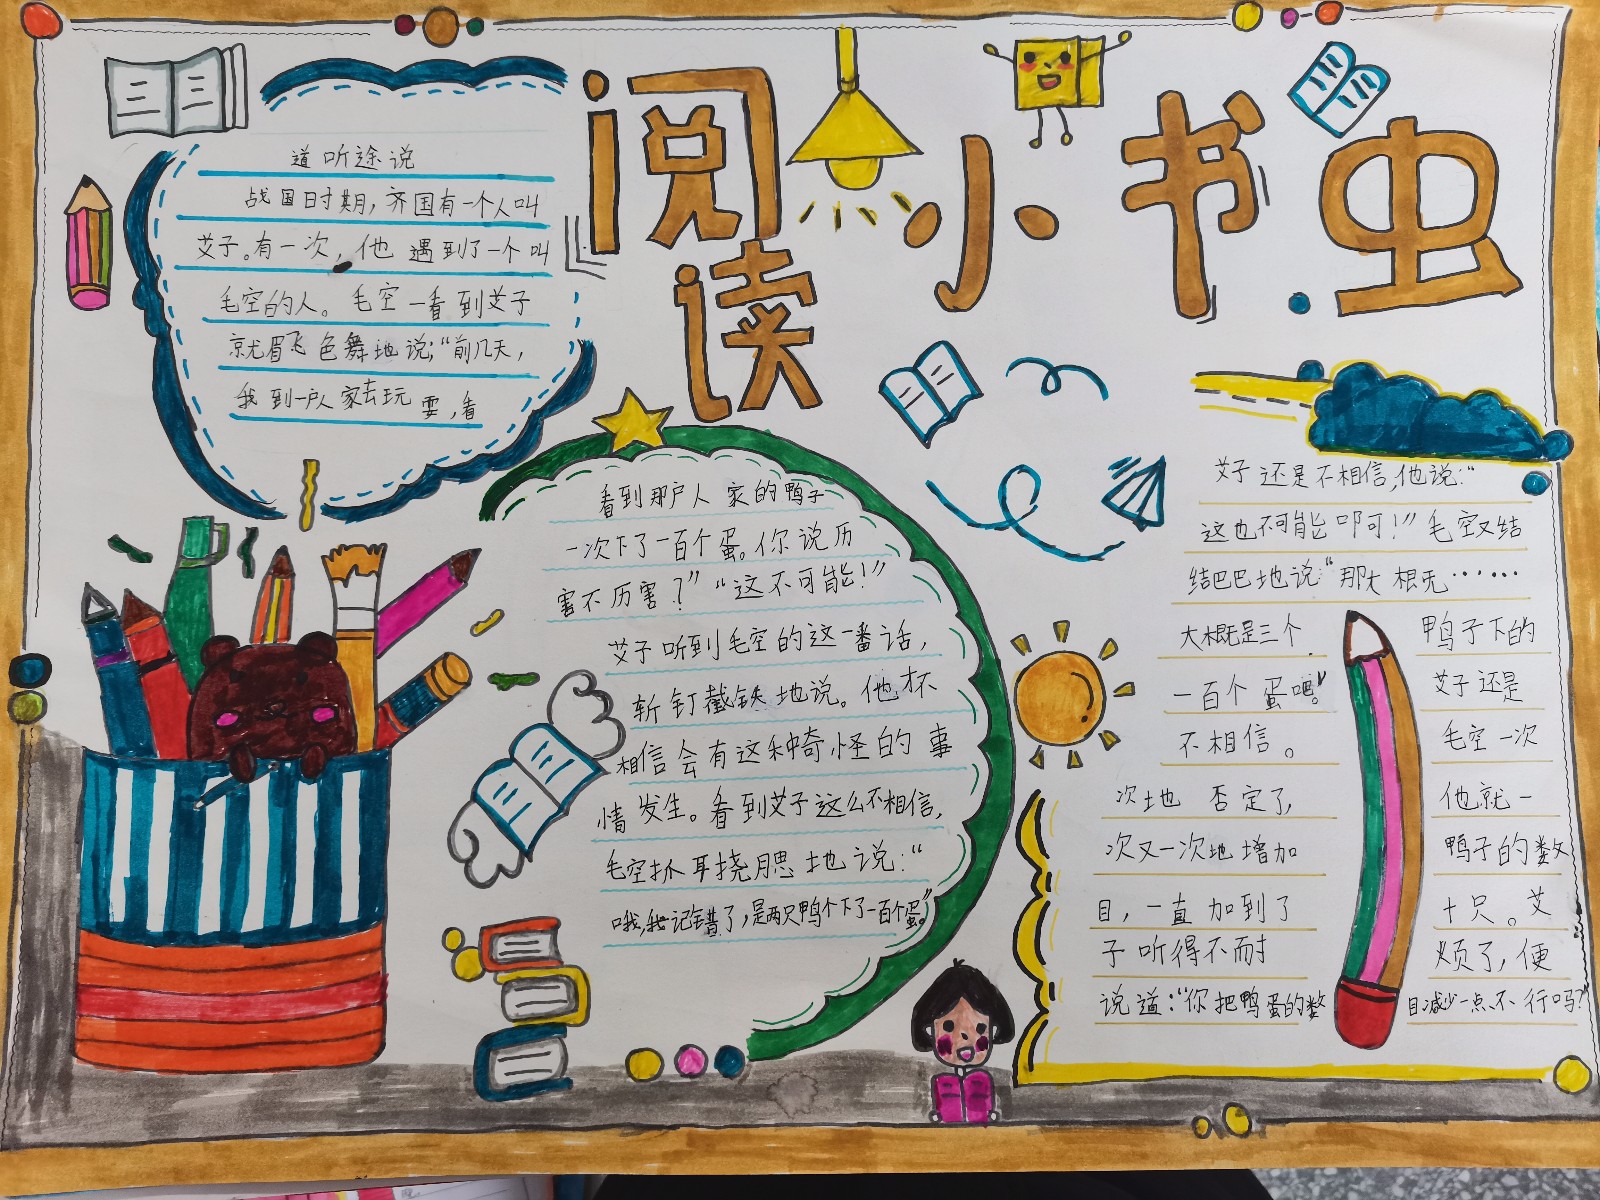 阅读
小书虫
道听途说
战国时期，齐国有一个人叫
艾子。有一次，他遇到了一个叫
毛空的人。毛空一看到艾子
就眉飞色舞地说；“前几天，
我到一户人家去玩耍，看
看到那户人家的鸭子
一次下了一百个蛋。你说历
害不历害？”“这不可能！”
艾子听到毛空的这一番话，
斩钉截铁地说。他才不
相信会有这种奇怪的事
情发生。看到艾子这么不相信，
毛空抓耳挠腮地说：“
哦，我记错了，是两只鸭个下了一百个蛋。”
艾子还是不相信，他说：“
这也不可能叩可！”毛空又结
结巴巴地说“那大概无……
大概是三个 鸭子下的
一百个蛋吧。” 艾子还是
不相信。 毛空一次
次地否定了， 他就一
次又一次地增加 鸭子的数
目，一直加到了 十只。艾
子听得不耐 烦了，便
说道：“你把鸭蛋的数 目减少一点不行吗？”